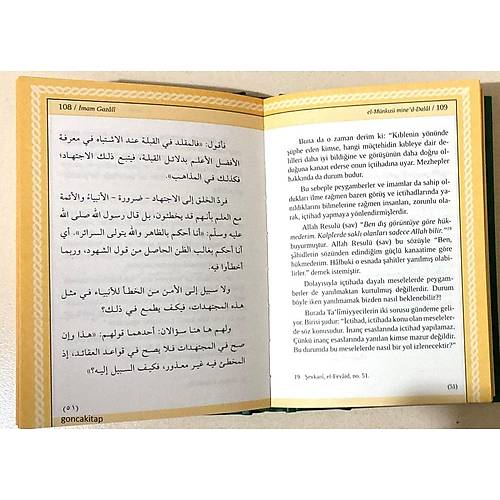 108 / İmam Gazâlî
فأقول: «فالمقلد في القبلة عند الاشتباه في معرفة
الأفضل الأعلم بدلائل القبلة، فيتبع ذلك الاجتهاد؛
فكذلك في المذاهب».
فردّ الخلق إلى الاجتهاد - ضرورة - الأنبياءُ والأئمة
مع العلم بأنهم قد يخطئون، بل قال رسول الله صلى الله
عليه وسلّم: «أنا أحكم بالظاهر والله يتولى السرائر». أي
أنا أحكم بغالب الظن الحاصل من قول الشهود، وربما
أخطأوا فيه.
ولا سبيل إلى الأمن من الخطأ للأنبياء في مثل
هذه المجتهدات، فكيف يطمع في ذلك؟
ولهم ها هنا سؤالان: أحدهما قولهم: «هذا وإن
صح في المجتهدات فلا يصح في قواعد العقائد، إذ
المخطئ فيه غير معذور، فكيف السبيل إليه؟»
(٥١)
goncakitap
el-Münkızü mine'd-Dalâl / 109
Buna da o zaman derim ki: "Kıblenin yönünde
şüphe eden kimse, hangi müçtehidin kıbleye dair de-
lilleri daha iyi bildiğine ve görüşünün daha doğru ol-
duğuna kanaat ederse onun içtihadına uyar. Mezhepler
hakkında da durum budur.
Bu sebeple peygamberler ve imamlar da sahip ol-
dukları ilme rağmen bazı görüş ve içtihadlarında yanıl-
dıklarını bilmelerine rağmen insanları, zorunlu olarak,
içtihad yapmaya yönlendirmişlerdir.
Allah Resulü (sav) "Ben dış görüntüye göre hük-
mederim. Kalplerde saklı olanları sadece Allah bilir."¹⁹
buyurmuştur. Allah Resulü (sav) bu sözüyle "Ben,
şahidlerin sözünden edindiğim güçlü kanaatime göre
hükmederim. Hâlbuki o esnada şahitler yanılmış olabi-
lirler." demek istemiştir.
Dolayısıyla içtihada dayalı meselelerde peygam-
berler de yanılmaktan kurtulmuş değillerdir. Durum
böyle iken yanılmamak bizden nasıl beklenebilir?!
Burada Ta'lîmiyecilerin iki sorusu gündeme geli-
yor. Birisi şudur: "İctihad, ictihada konu olan meseleler-
de söz konusudur. İnanç esaslarında ictihad yapılamaz.
Çünkü inanç esaslarında yanılan kimse mazur değildir.
Bu durumda bu meselelerde nasıl bir yol izlenecektir?"
19 Şevkanî, el-Fevâid, no. 51.
(51)